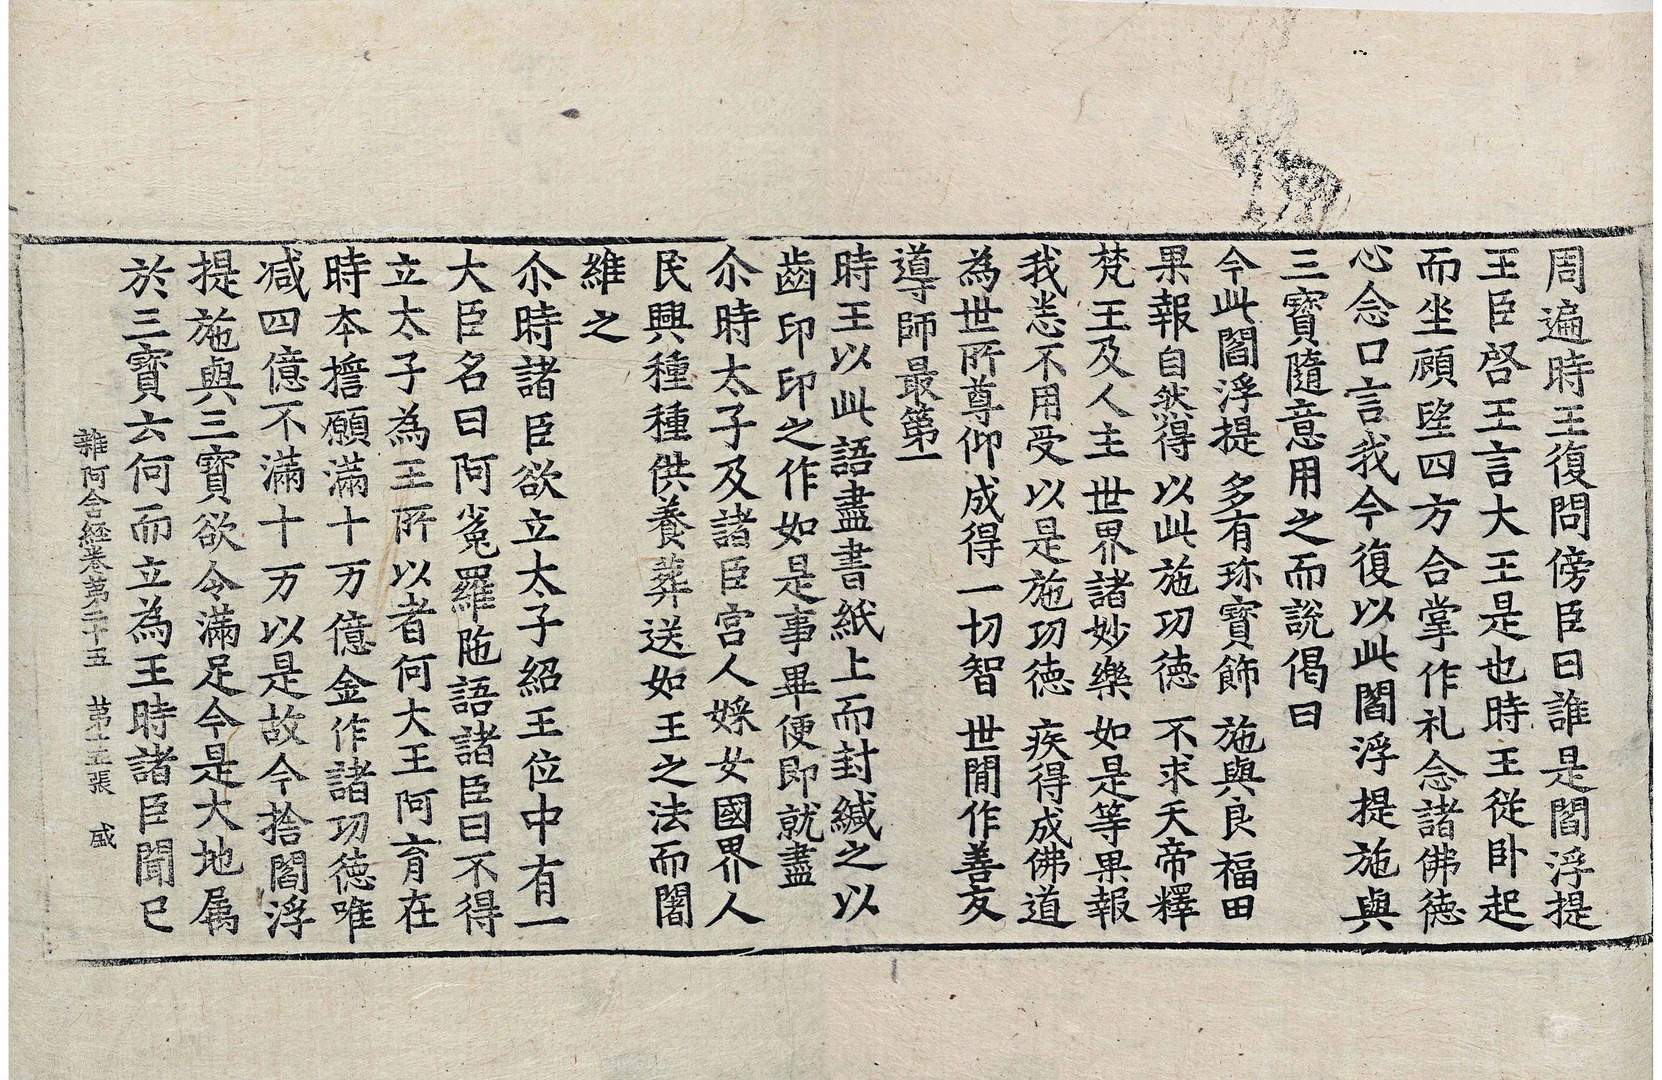 周遍時王復問傍臣曰誰是閻浮提
王臣啓王言大王是也時王從卧起
而坐顧望四方合掌作礼念諸佛德
心念口言我今復以此閻浮提施與
三寳隨意用之而說偈曰
今此閻浮提 多有珎寳飾 施與良福田
果報自然得 以此施功德 不求天帝釋
梵王及人主 世界諸妙樂 如是等果報
我悉不用受 以是施功德 疾得成佛道
為世所尊仰 成得一切智 世間作善友
導師最第一
時王以此語盡書紙上而封緘之以
齒印印之作如是事畢便即就盡
尒時太子及諸臣宮人婇女國界人
民興種種供養葬送如王之法而闍
維之
尒時諸臣欲立太子紹王位中有一
大臣名曰阿㝹羅陁語諸臣曰不得
立太子為王所以者何大王阿育在
時本擔願滿十万億金作諸功德唯
减四億不滿十万以是故今捨閻浮
提施與三寳欲令滿足今是大地属
於三寳云何而立為王時諸臣聞已
雜阿含経卷第二十五 第十五張 盛